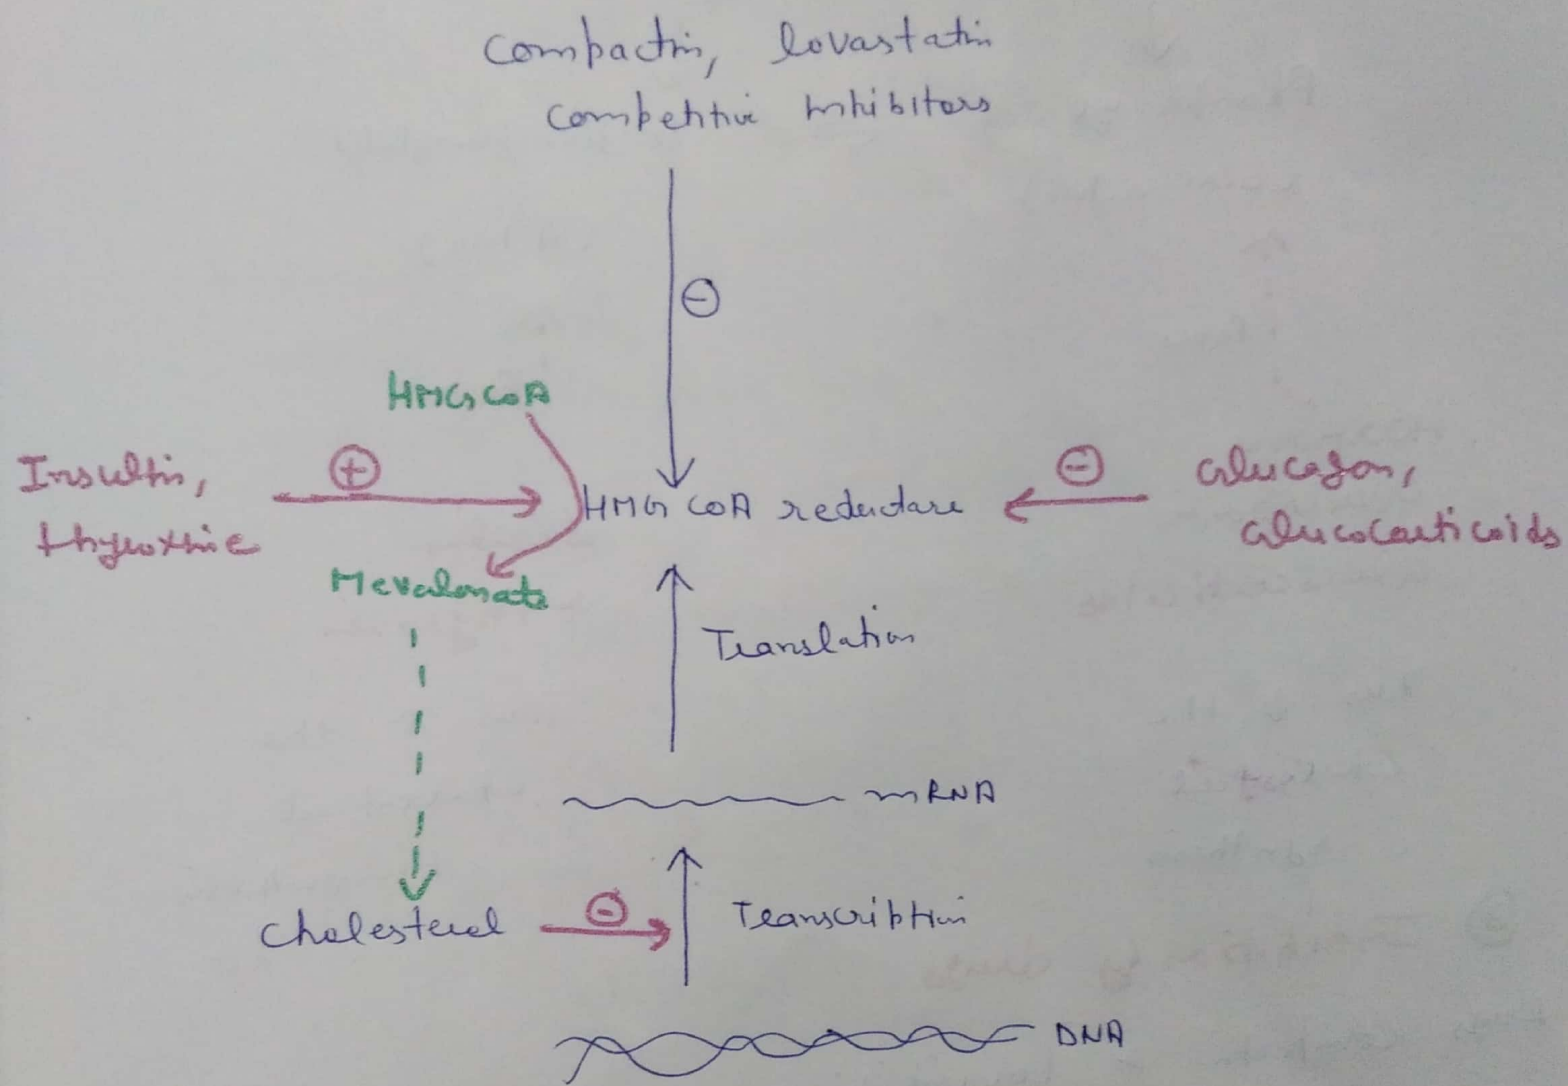 Compactin, lovastatin
Competitive inhibitors
⊖
HMG CoA
Insulin,
thyroxine
⊕
HMG CoA reductase
⊖
Glucagon,
Glucocorticoids
Mevalonate
Translation
mRNA
Cholesterol
⊖
Transcription
DNA